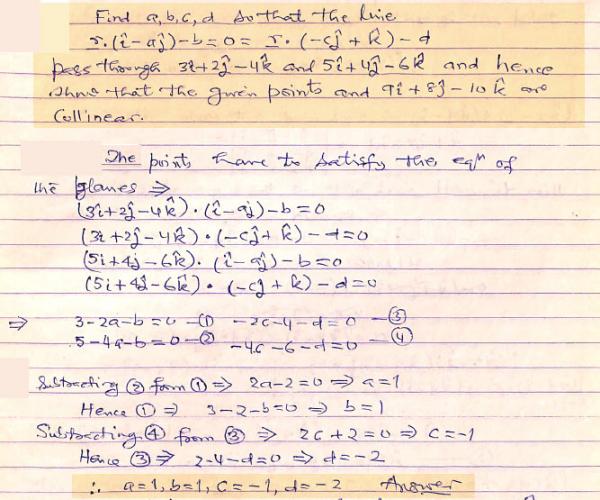 Find a,b,c,d so that the line
r.(î-aĵ)-b=0= r.(-cĵ+k̂)-d
pass through 3î+2ĵ-4k̂ and 5î+4ĵ-6k̂ and hence
show that the given points and 9î+8ĵ-10k̂ are
collinear.
The points have to satisfy the eqⁿ of
the planes ⇒
(3î+2ĵ-4k̂).(î-aĵ)-b=0
(3î+2ĵ-4k̂).(-cĵ+k̂)-d=0
(5i+4j-6k̂).(î-aĵ)-b=0
(5i+4ĵ-6k̂).(-cĵ+k̂)-d=0
⇒ 3-2a-b=0 -① -2c-4-d=0 -③
5-4a-b=0-② -4c-6-d=0 -④
Subtracting ② form ① ⇒ 2a-2=0 ⇒ a=1
Hence ① ⇒ 3-2-b=0 ⇒ b=1
Subtracting ④ from ③ ⇒ 2c+2=0 ⇒ c=-1
Hence ③ ⇒ 2-4-d=0 ⇒ d=-2
∴ a=1, b=1, c=-1, d=-2 Answer